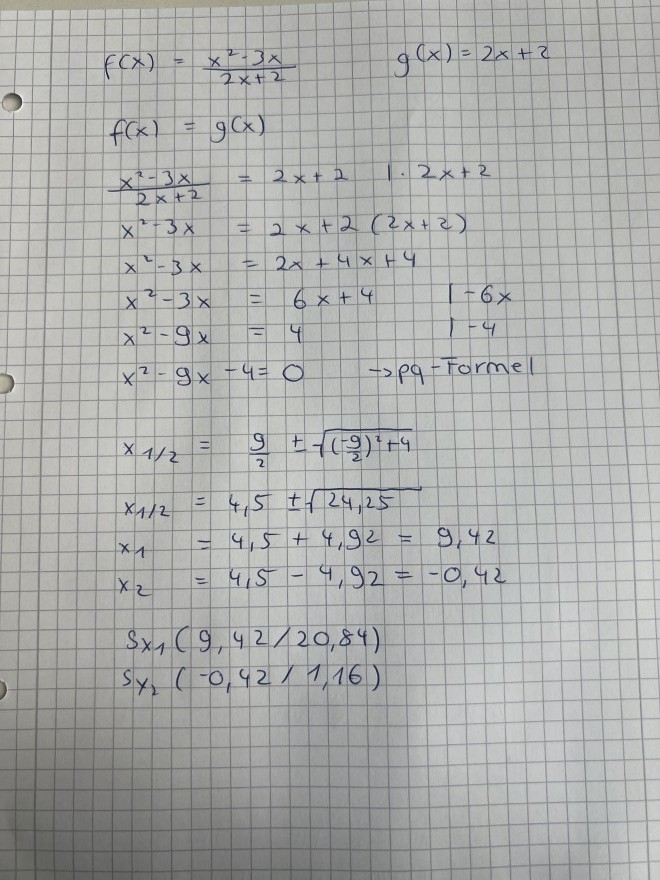 f(x) = (x² - 3x)/(2x+2)    g(x) = 2x+2
f(x) = g(x)
(x² - 3x)/(2x+2) = 2x+2   | · 2x+2
x² - 3x = 2x+2 (2x+2)
x² - 3x = 2x + 4x + 4
x² - 3x = 6x + 4   | -6x
x² - 9x = 4   | -4
x² - 9x - 4 = 0   → pq-Formel
x₁/₂ = 9/2 ± √((-9/2)² + 4)
x₁/₂ = 4,5 ± √24,25
x₁ = 4,5 + 4,92 = 9,42
x₂ = 4,5 - 4,92 = -0,42
Sx₁ (9,42/20,84)
Sx₂ (-0,42/1,16)